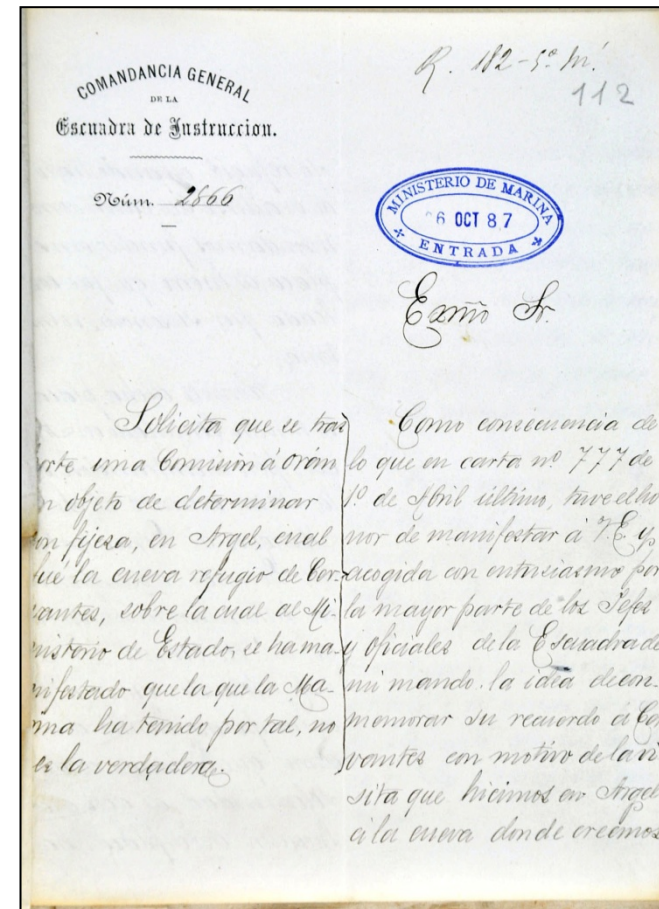 R. 182-5º m.
112
COMANDANCIA GENERAL
DE LA
Escuadra de Instruccion.
Núm. 2866
MINISTERIO DE MARINA
6 OCT 87
ENTRADA
Exmõ Sr.
Solicita que se tras
orte una Comisión á Orán
n objeto de determinar
on fijeza, en Argel, cual
ué la cueva refugio de Cer-
vantes, sobre la cual al Mi-
nisterio de Estado, se ha ma-
nifestado que la que la Ma-
rina ha tenido por tal, no
es la verdadera.
Como consecuencia de
lo que en carta nº 777 de
1º de Abril último, tuve el ho
nor de manifestar á V.E. y
acogida con entusiasmo por
la mayor parte de los Jefes
y oficiales de la Escuadra de
mi mando la idea de con-
memorar su recuerdo á Cer
vantes con motivo de la vi
sita que hicimos en Argel
á la cueva donde creemos